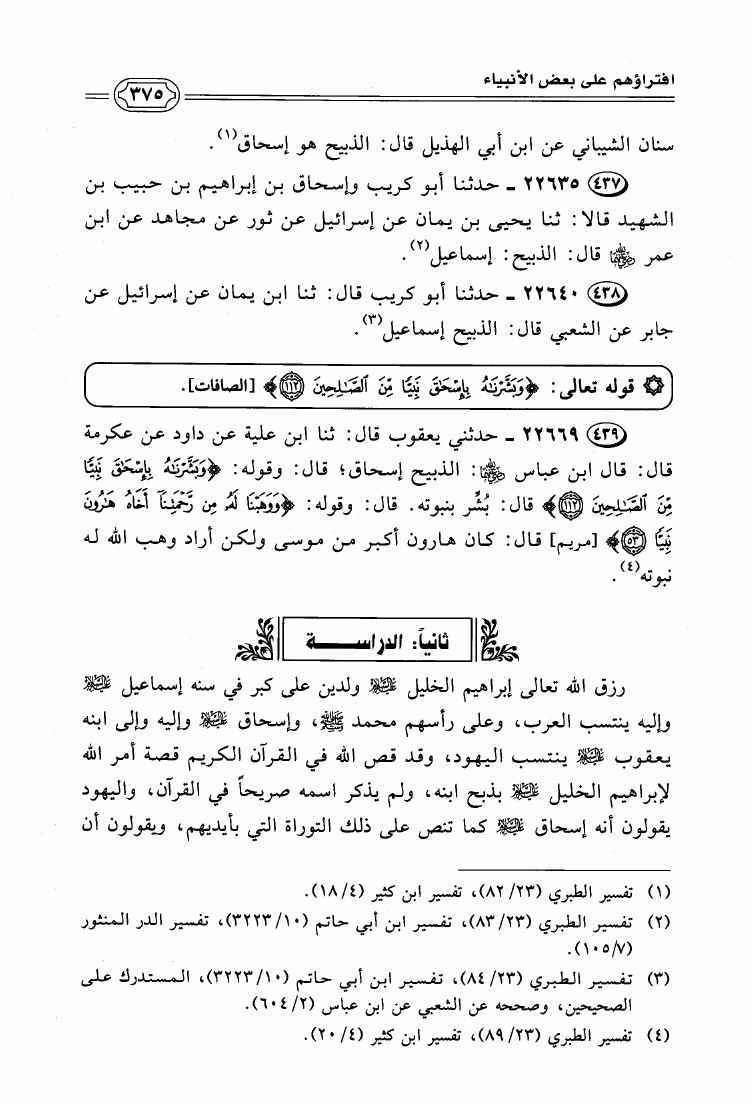 افتراؤهم على بعض الأنبياء
٣٧٥
سنان الشيباني عن ابن أبي الهذيل قال: الذبيح هو إسحاق(١).
٤٣٧ ٢٢٦٣٥ ـ حدثنا أبو كريب وإسحاق بن إبراهيم بن حبيب بن
الشهيد قالا: ثنا يحيى بن يمان عن إسرائيل عن ثور عن مجاهد عن ابن
عمر رضي الله عنهما قال: الذبيح: إسماعيل(٢).
٤٣٨ ٢٢٦٤٠ ـ حدثنا أبو كريب قال: ثنا ابن يمان عن إسرائيل عن
جابر عن الشعبي قال: الذبيح إسماعيل(٣).
قوله تعالى: ﴿وَبَشَّرْنَاهُ بِإِسْحَاقَ نَبِيًّا مِّنَ الصَّالِحِينَ ١١٢﴾ [الصافات].
٤٣٩ ٢٢٦٦٩ ـ حدثني يعقوب قال: ثنا ابن علية عن داود عن عكرمة
قال: قال ابن عباس رضي الله عنهما: الذبيح إسحاق؛ قال: وقوله: ﴿وَبَشَّرْنَاهُ بِإِسْحَاقَ نَبِيًّا
مِّنَ الصَّالِحِينَ ١١٢﴾ قال: بُشِّر بنبوته. قال: وقوله: ﴿وَوَهَبْنَا لَهُ مِن رَّحْمَتِنَا أَخَاهُ هَارُونَ
نَبِيًّا ٥٣﴾ [مريم] قال: كان هارون أكبر من موسى ولكن أراد وهب الله له
نبوته(٤).
ثانياً: الدراسة
رزق الله تعالى إبراهيم الخليل عليه السلام ولدين على كبر في سنه إسماعيل عليه السلام
وإليه ينتسب العرب، وعلى رأسهم محمد ﷺ، وإسحاق عليه السلام وإليه وإلى ابنه
يعقوب عليه السلام ينتسب اليهود، وقد قص الله في القرآن الكريم قصة أمر الله
لإبراهيم الخليل عليه السلام بذبح ابنه، ولم يذكر اسمه صريحاً في القرآن، واليهود
يقولون أنه إسحاق عليه السلام كما تنص على ذلك التوراة التي بأيديهم، ويقولون أن
(١) تفسير الطبري (٨٢/٢٣)، تفسير ابن كثير (١٨/٤).
(٢) تفسير الطبري (٨٣/٢٣)، تفسير ابن أبي حاتم (٣٢٢٣/١٠)، تفسير الدر المنثور
(١٠٥/٧).
(٣) تفسير الطبري (٨٤/٢٣)، تفسير ابن أبي حاتم (٣٢٢٣/١٠)، المستدرك على
الصحيحين، وصححه عن الشعبي عن ابن عباس (٦٠٤/٢).
(٤) تفسير الطبري (٨٩/٢٣)، تفسير ابن كثير (٢٠/٤).